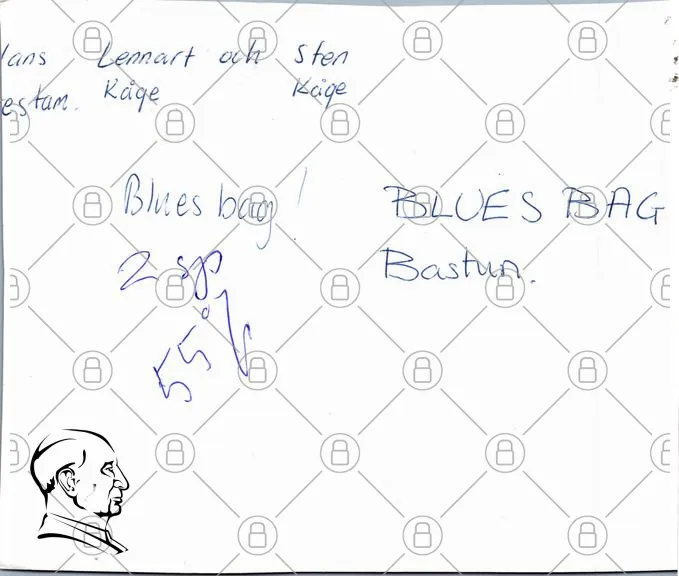 Lennart och Sten
estam. Kåge Kåge
Blues bag!
2 sp
55%
BLUES BAG
Bastun.